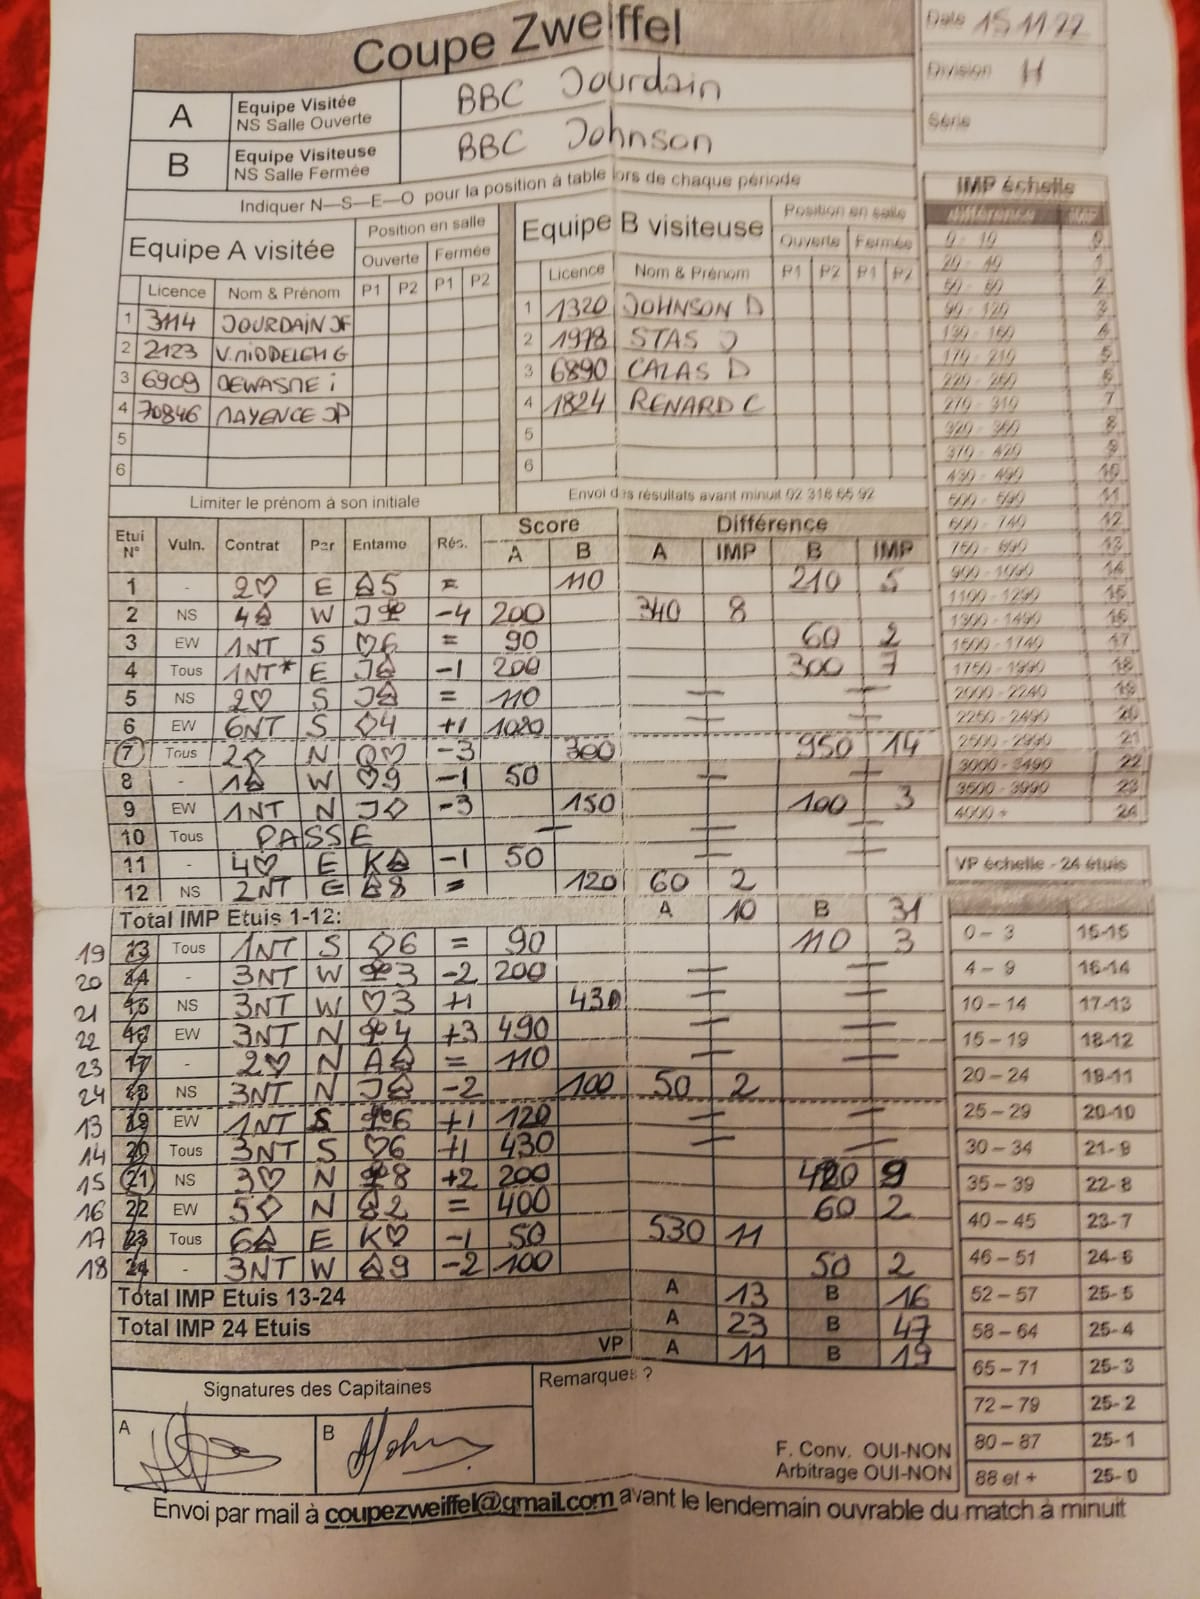 Coupe Zweiffel
Date 15 11 22
Division H
Série
A Equipe Visitée NS Salle Ouverte BBC Jourdain
B Equipe Visiteuse NS Salle Fermée BBC Johnson
Indiquer N—S—E—O pour la position à table lors de chaque période
Equipe A visitée Position en salle
Ouverte Fermée
Licence Nom & Prénom P1 P2 P1 P2
1 3114 JOURDAIN JF
2 2123 V.MIDDELEM G
3 6909 DEWASME i
4 70846 MAYENCE JP
5
6
Equipe B visiteuse Position en salle
Ouverte Fermée
Licence Nom & Prénom P1 P2 P1 P2
1 1320 JOHNSON D
2 1978 STAS J
3 6890 CALAS D
4 1824 RENARD C
5
6
Limiter le prénom à son initiale
Envoi des résultats avant minuit 02 318 65 92
IMP échelle
différence IMP
0 - 10 0
20 - 40 1
50 - 80 2
90 - 120 3
130 - 160 4
170 - 210 5
220 - 260 6
270 - 310 7
320 - 360 8
370 - 420 9
430 - 490 10
500 - 590 11
600 - 740 12
750 - 890 13
900 - 1090 14
1100 - 1290 15
1300 - 1490 16
1500 - 1740 17
1750 - 1990 18
2000 - 2240 19
2250 - 2490 20
2500 - 2990 21
3000 - 3490 22
3500 - 3990 23
4000 + 24
Etui N° Vuln. Contrat Par Entame Rés. Score A B Différence A IMP B IMP
1 - 2♡ E ♤5 = 110 210 5
2 NS 4♤ W J♧ -4 200 340 8
3 EW 1NT S ♡6 = 90 60 2
4 Tous 1NT* E J♤ -1 200 300 7
5 NS 2♡ S J♤ = 110 — —
6 EW 6NT S ♢4 +1 1020 — —
7 Tous 2♤ N Q♡ -3 300 950 14
8 - 1♤ W ♡9 -1 50 — —
9 EW 1NT N J♢ -3 150 100 3
10 Tous PASSE — — —
11 - 4♡ E K♤ -1 50 — —
12 NS 2NT E ♤8 = 120 60 2
Total IMP Etuis 1-12: A 10 B 31
19 13 Tous 1NT S ♢6 = 90 110 3
20 14 - 3NT W ♧3 -2 200 — —
21 15 NS 3NT W ♡3 +1 430 — —
22 16 EW 3NT N ♧4 +3 490 — —
23 17 - 2♡ N A♤ = 110 — —
24 18 NS 3NT N J♤ -2 100 50 2
13 19 EW 1NT S ♧6 +1 120 — —
14 20 Tous 3NT S ♡6 +1 430 — —
15 21 NS 3♡ N ♧8 +2 200 420 9
16 22 EW 5♢ N ♤2 = 400 60 2
17 23 Tous 6♤ E K♡ -1 50 530 11
18 24 - 3NT W ♤9 -2 100 50 2
Total IMP Etuis 13-24 A 13 B 16
Total IMP 24 Etuis A 23 B 47
VP A 11 B 19
VP échelle - 24 étuis
0 – 3 15-15
4 – 9 16-14
10 – 14 17-13
15 – 19 18-12
20 – 24 19-11
25 – 29 20-10
30 – 34 21-9
35 – 39 22-8
40 – 45 23-7
46 – 51 24-6
52 – 57 25-5
58 – 64 25-4
65 – 71 25-3
72 – 79 25-2
80 – 87 25-1
88 et + 25-0
Signatures des Capitaines
A
B
Remarques ?
F. Conv. OUI-NON
Arbitrage OUI-NON
Envoi par mail à coupezweiffel@gmail.com avant le lendemain ouvrable du match à minuit